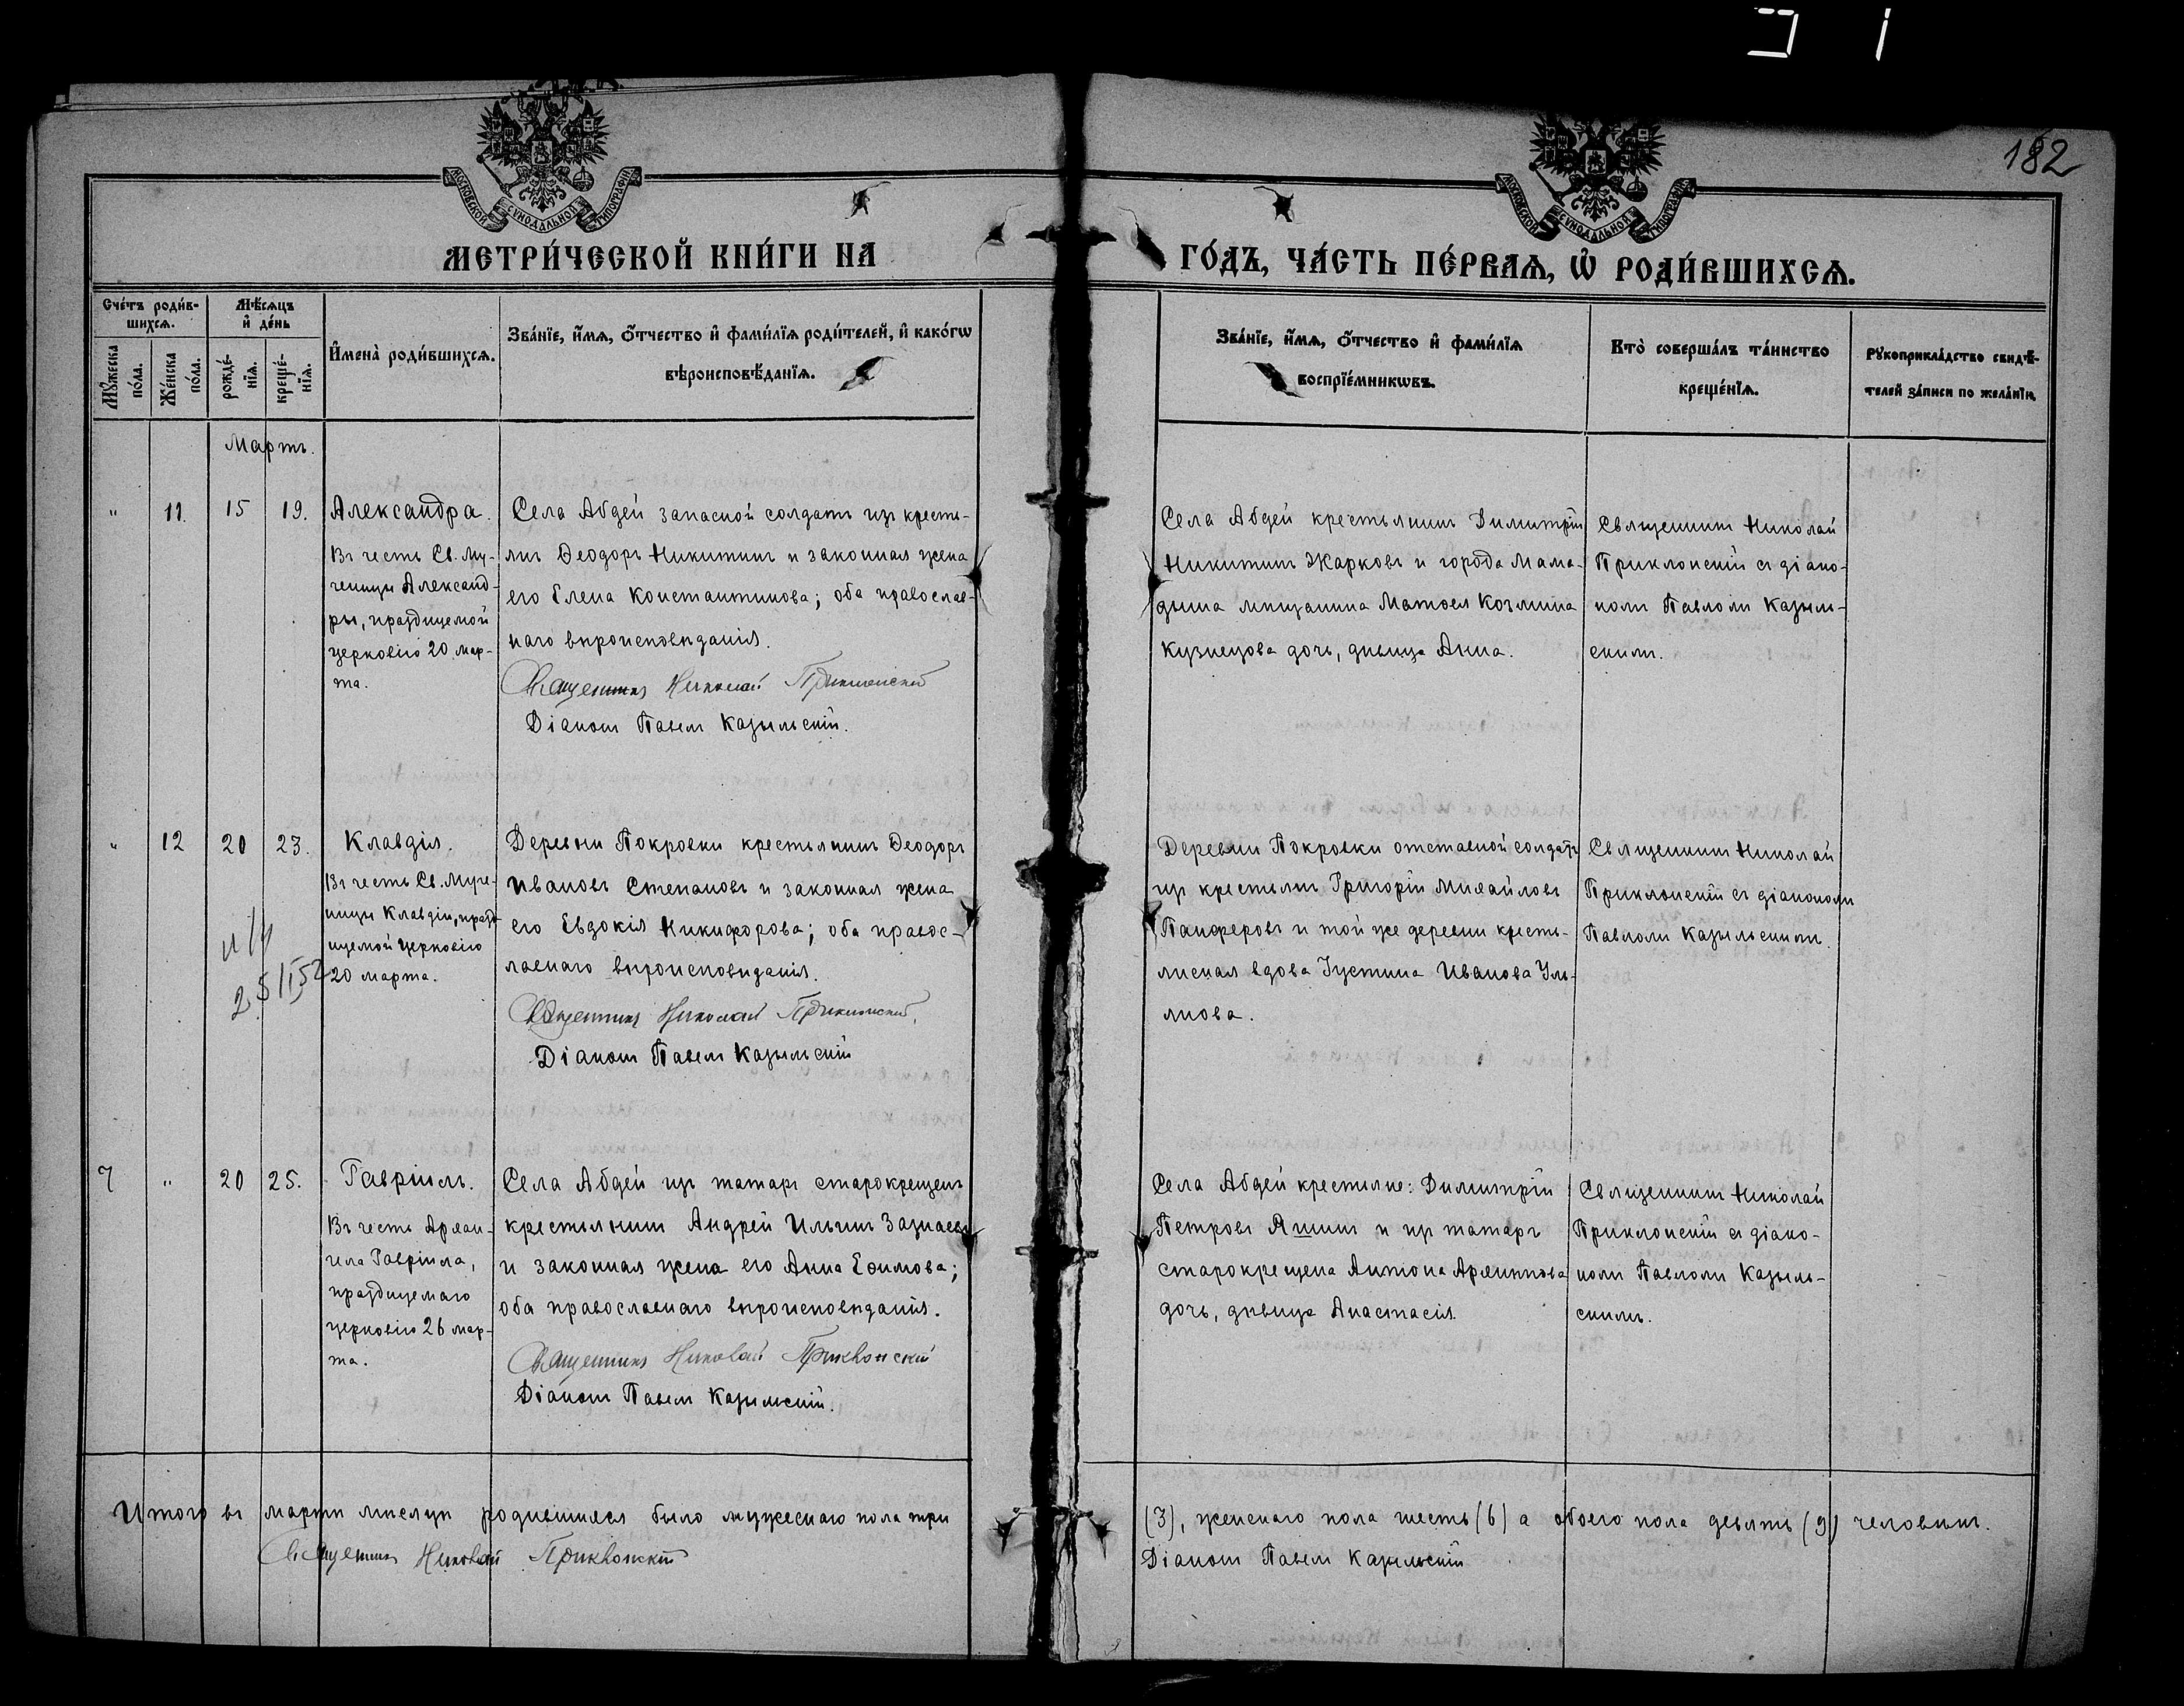 182
МОСКОВСКОЙ СУНОДАЛЬНОЙ ТИПОГРАФІИ
МОСКОВСКОЙ СУНОДАЛЬНОЙ ТИПОГРАФІИ
МЕТРИ́ЧЕСКОЙ КНИ́ГИ НА
ГО́ДЪ, ЧА́СТЬ ПЕ́РВАѦ, Ѡ҆ РОДИ́ВШИХСѦ.
Сче́тъ роди́в-
шихсѧ.
Мѣ́сѧцъ
и҆ де́нь
Мꙋ́жеска
по́ла.
Же́нска
по́ла.
рожде́-
нїѧ.
креще́-
нїѧ.
И҆мена̀ роди́вшихсѧ.
Зва́нїе, и҆́мѧ, ѻ҆́тчество и҆ фами́лїѧ роди́телей, и҆ како́гѡ
вѣроисповѣ́данїѧ.
Зва́нїе, и҆́мѧ, ѻ҆́тчество и҆ фами́лїѧ
воспрїе́мникѡвъ.
Кто̀ соверша́лъ та́инство
креще́нїѧ.
Рꙋкоприкла́дство свидѣ́-
телей за́писи по жела́нїю.
Мартъ.
" 11. 15 19. Александра.
Въ честь Св. Му-
ченицы Александ-
ры, празднуемой
церковію 20 мар-
та.
Села Абдей запасной солдатъ изъ кресть-
янъ Ѳеодоръ Никитинъ и законная жена
его Елена Константинова; оба православ-
наго вѣроисповѣданія.
Священникъ Николай Приклонскій
Діаконъ Павелъ Казыльскій.
Села Абдей крестьянинъ Димитрій
Никитинъ Жарковъ и города Мама-
дыша мѣщанина Матвея Козмина
Кузнецова дочь, дѣвица Анна.
Священникъ Николай
Приклонскій съ діако-
номъ Павломъ Казыль-
скимъ.
" 12 20 23. Клавдія.
Въ честь Св. Муче-
ницы Клавдіи, празд-
нуемой церковію
20 марта.
25/II 52
Деревни Покровки крестьянинъ Ѳеодоръ
Ивановъ Степановъ и законная жена
его Евдокія Никифорова; оба правос-
лавнаго вѣроисповѣданія.
Священникъ Николай Приклонскій.
Діаконъ Павелъ Казыльскій
Деревни Покровки отставной солдатъ
изъ крестьянъ Григорій Михайловъ
Панферовъ и той же деревни кресть-
янская вдова Іустина Иванова Уль-
янова.
Священникъ Николай
Приклонскій съ діакономъ
Павломъ Казыльскимъ.
7 " 20 25. Гавріилъ.
Въ честь Архан-
гела Гавріила,
празднуемаго
церковію 26 мар-
та.
Села Абдей изъ татаръ старокрещенъ
крестьянинъ Андрей Ильинъ Зазнаевъ
и законная жена его Анна Ефимова;
оба православнаго вѣроисповѣданія.
Священникъ Николай Приклонскій
Діаконъ Павелъ Казыльскій.
Села Абдей крестьяне: Димитрій
Петровъ Яшинъ и изъ татаръ
старокрещена Антона Архиппова
дочь, дѣвица Анастасія.
Священникъ Николай
Приклонскій съ діако-
номъ Павломъ Казыль-
скимъ.
Итого въ мартѣ мѣсяцѣ родившихся было мужескаго пола три
(3), женскаго пола шесть (6) а обоего пола девять (9) человѣкъ.
Священникъ Николай Приклонскій
Діаконъ Павелъ Казыльскій